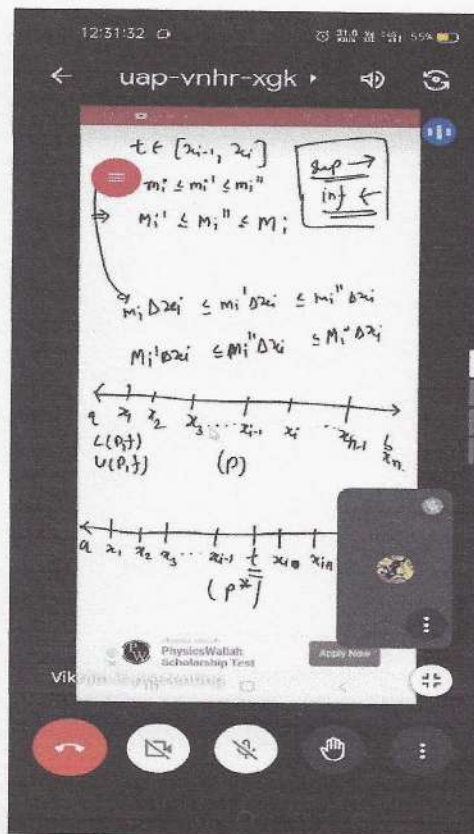 12:31:32
55%
uap-vnhr-xgk
t ∈ [x_{i-1}, x_i]
m_i ≤ m_i' ≤ m_i''
→ M_i' ≤ M_i'' ≤ M_i
sup →
inf ←
m_i Δx_i ≤ m_i' Δx_i ≤ m_i'' Δx_i
M_i' Δx_i ≤ M_i'' Δx_i ≤ M_i Δx_i
a x_1 x_2 x_3 ..... x_{i-1} x_i ... x_{n-1} b
x_n
L(P,f)
U(P,f)
(P)
a x_1 x_2 x_3 ... x_{i-1} t x_i
(P*)
PW
PhysicsWallah
Scholarship Test
Apply Now